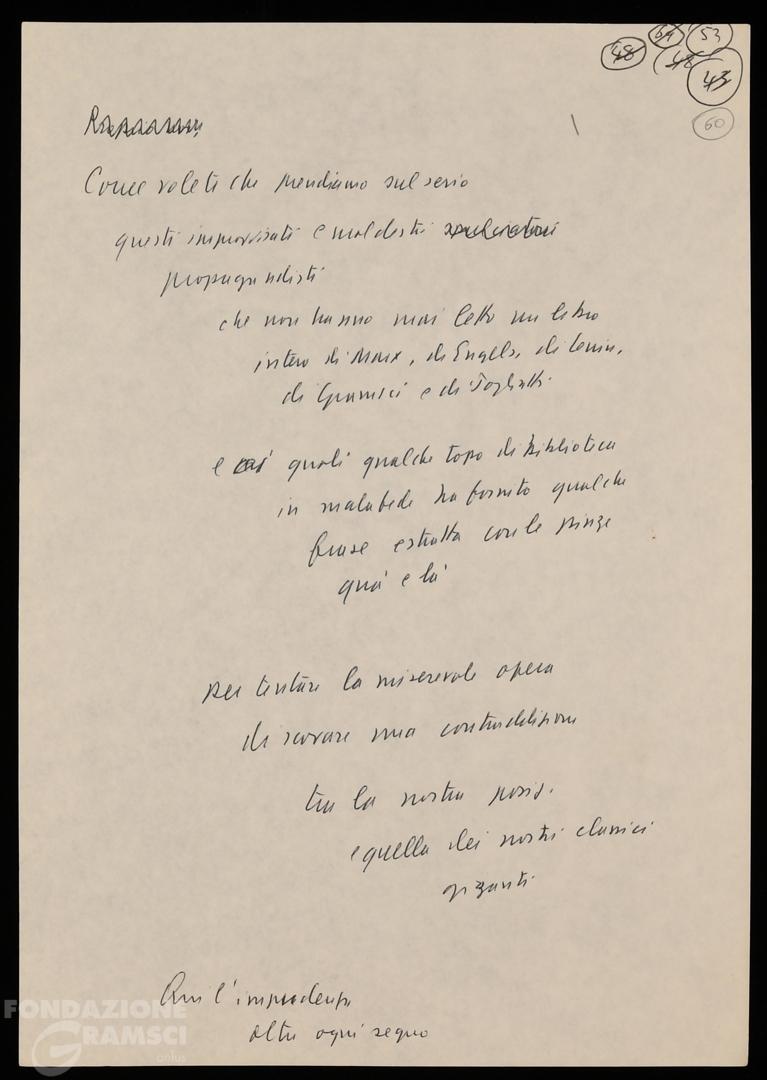 48 64 53
48 43
60
Come volete che prendiamo sul serio
questi improvvisati e maldestri
propagandisti
che non hanno mai letto un libro
intero di Marx, di Engels, di Lenin,
di Gramsci e di Togliatti
e ai quali qualche topo di biblioteca
in malafede ha fornito qualche
frase estratta con le pinze
quà e là
per tentare la miserevole opera
di scovare una contraddizione
tra la nostra posiz.
e quella dei nostri classici
giganti
Qui l'impudenza
oltre ogni segno
FONDAZIONE
GRAMSCI
onlus